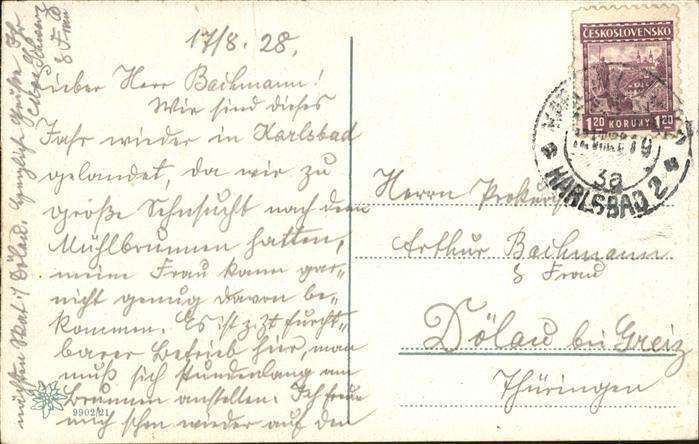 17/8. 28.
Lieber Herr Bachmann!
Wir sind dieses
Jahr wieder in Karlsbad
gelandet, da wir zu
große Sehnsucht nach dem
Mühlbrunnen hatten,
meine Frau kann gar-
nicht genug davon be-
kommen. Es ist jetzt furcht-
barer Betrieb hier, man
muß sich stundenlang am
Brunnen anstellen. Ich freue
mich schon wieder auf den
nächsten Skat i/ Dölau. Herzliche Grüße Ihr
& Frau
ČESKOSLOVENSKO
1.20 KORUNY 1.20
KARLSBAD 2
3a
Herrn Prokurist
Arthur Bachmann
& Frau
Dölau bei Greiz
Thüringen
9902/21